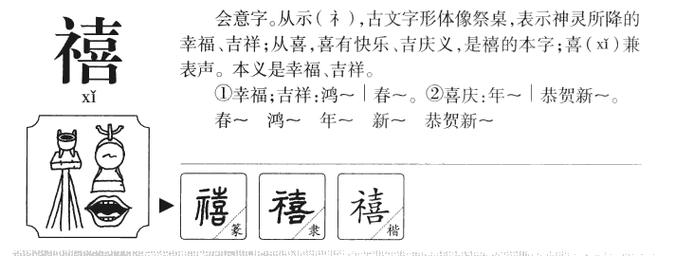 禧
xǐ
会意字。从示(礻),古文字形体像祭桌,表示神灵所降的
幸福、吉祥;从喜,喜有快乐、吉庆义,是禧的本字;喜(xǐ)兼
表声。本义是幸福、吉祥。
①幸福;吉祥:鸿～│春～。②喜庆:年～│恭贺新～。
春～ 鸿～ 年～ 新～ 恭贺新～
禧 篆
禧 隶
禧 楷